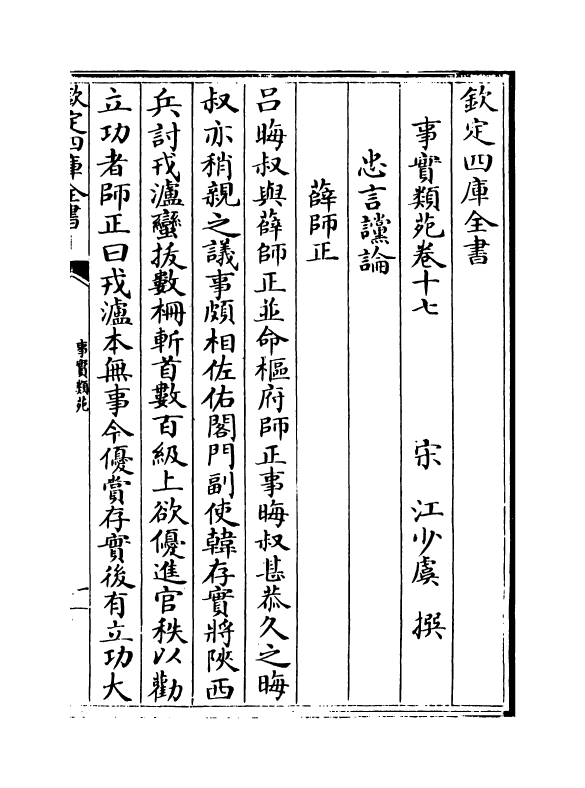 欽定四庫全書
事實類苑卷十七 宋 江少虞 撰
忠言讜論
薛師正
呂晦叔與薛師正並命樞府師正事晦叔甚恭久之晦
叔亦稍親之議事頗相佐佑閣門副使韓存實將陜西
兵討戎瀘蠻拔數柵斬首數百級上欲優進官秩以勸
立功者師正曰戎瀘本無事今優賞存實後有立功大
欽定四庫全書
事實類苑